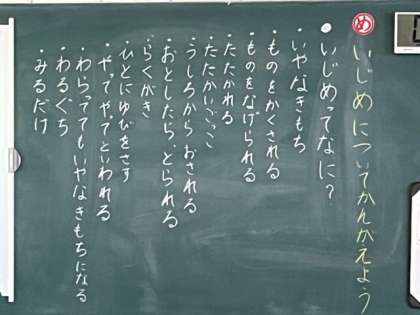 め いじめについてかんがえよう
・いじめってなに？
・いやなきもち
・ものをかくされる
・ものをなげられる
・たたかれる
・たたかいごっこ
・うしろから おされる
・おとしたら、とられる
・らくがき
・ひとにゆびをさす
・やってやってといわれる
・わらってても いやなきもちになる
・わるぐち
・みるだけ